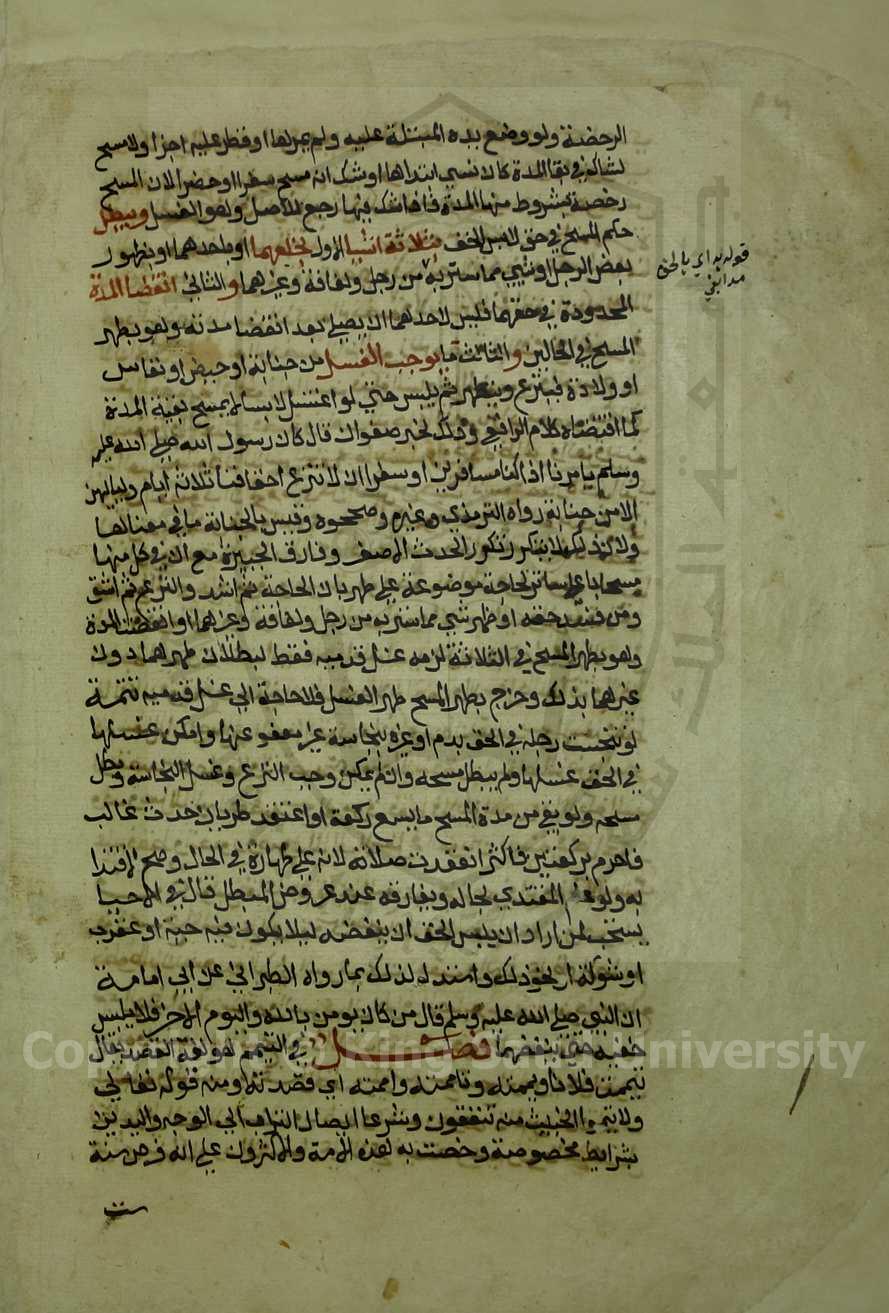 الرخصة ولو وضع يده المبتلة عليه ولم يمرها او قطر عليه اجزا ولا مسح
لشاك في بقا المدة كان نسي ابتداها او شك انه مسح سفرا او حضرا لان المسح
رخصة بشروط منها المدة فاذا شك فيها رجع للاصل وهو الغسل ويبطل
حكم المسح في حق لابس الخف بثلاثة اشيا الاول بخلعهما او باحدهما او بظهور
بعض الرجل او شي مما ستر به من رجل ولفافة وغيرهما والثاني انقضا المدة
المحدودة في حقهما فليس لاحدهما ان يصلي بعد انقضا مدته وهو بطهر
المسح في الحالين والثالث ما يوجب الغسل من جنابة او حيض او نفاس
او ولادة فينزع ويتطهر ثم يلبس حتي لو اغتسل لابسا لا يمسح بقية المدة
كما اقتضاه كلام الرافعي وذلك لخبر صفوان قال كان رسول الله صلي الله عليه
وسلم يامرنا اذا كنا مسافرين او سفرا ان لا ننزع خفافنا ثلاثة ايام ولياليهن
الا من جنابة رواه الترمذي وغيره وصححوه وقيس بالجنابة ما في معناها
ولان ذلك لا يتكرر تكرر الحدث الاصغر وفارق الجبيرة مع ان في كل منهما
مسحا باعلي ساتر لحاجة موضوعة علي طهر بان الحاجة ثم اشد والنزع ثم اشق
ومن فسد خفه او ظهر شي مما ستر به من رجل ولفافة وغيرهما او انقضت المدة
وهو بطهر المسح في الثلاثة لزمه غسل قدميه فقط لبطلان طهرهما دون
غيرهما بذلك وخرج بطهر المسح طهر الغسل فلا حاجة الي غسل قدميه تتمة
لو تنجست رجله في الخف بدم او غيره بنجاسة غير معفو عنها وامكن غسلها
في الخف غسلها ولم يبطل مسحه وان لم يمكن وجب النزع وغسل النجاسة وبطل
مسحه ولو بقي من مدة المسح ما يسع ركعة او اعتقد طريان حدث غالب
فاحرم بركعتين فاكثر انعقدت صلاته لانه علي طهارة في الحال وصح الاقتدا
به ولو علم المقتدي بحاله ويفارقه عند عروض المبطل قال في الاحيا
يستحب لمن اراد ان يلبس الخف ان ينفضه ليلا يكون فيه حية او عقرب
او شوكة او نحو ذلك واستدل لذلك بما رواه الطبراني عن ابي امامة
ان النبي صلي الله عليه وسلم قال من كان يومن بالله واليوم الاخر فلا يلبس
خفيه حتي ينفضهما فصل في التيمم هو لغة القصد يقال
تيممت فلانا ويممته وتاممته واممته اي قصدته ومنه قوله تعالي
ولا تيمموا الخبيث منه تنفقون وشرعا ايصال التراب الي الوجه واليدين
بشرايط مخصوصة وخصت به هذه الامة والاكثرون علي انه فرض سنة
ست
قوله به اي بالخف
مدابغي
Copyright © King Saud University